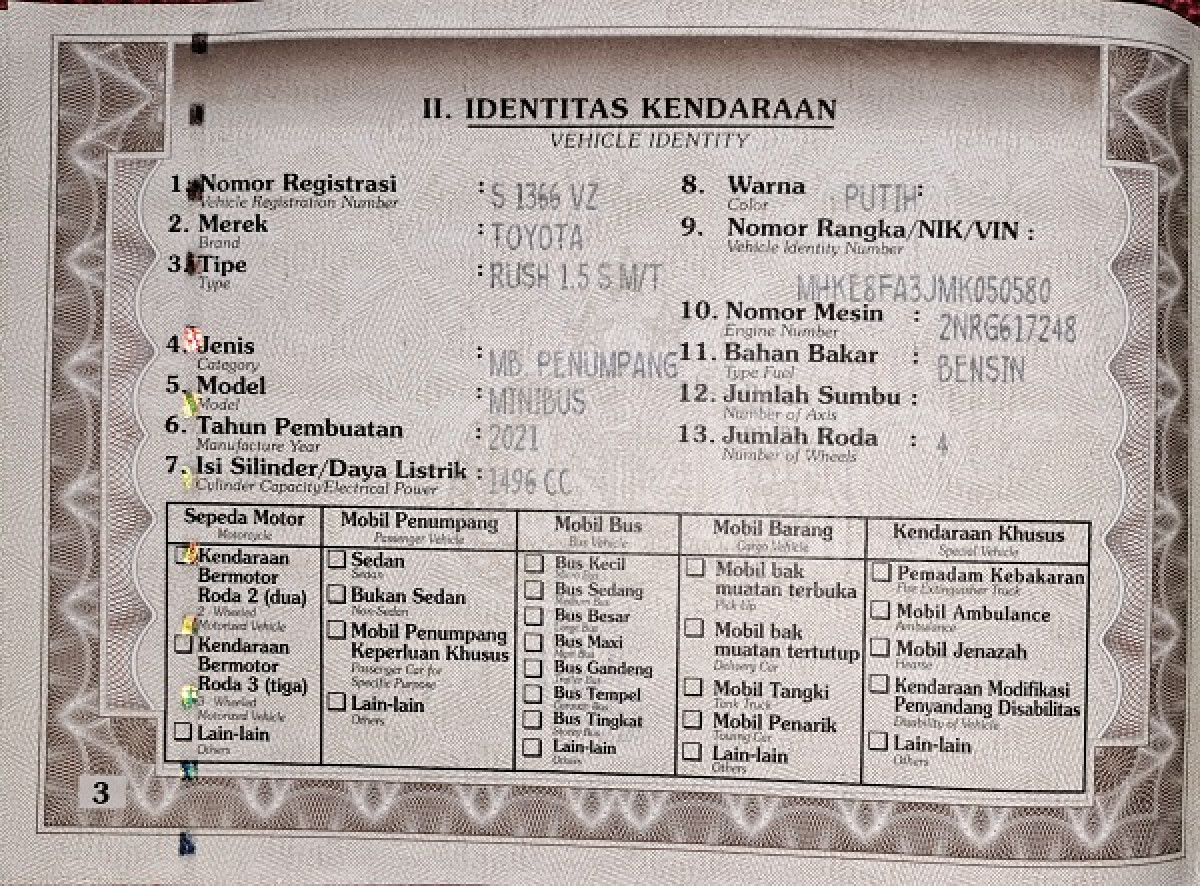 II. IDENTITAS KENDARAAN
VEHICLE IDENTITY
1. Nomor Registrasi : S 1366 VZ
Vehicle Registration Number
2. Merek : TOYOTA
Brand
3. Tipe : RUSH 1.5 S M/T
Type
4. Jenis : MB. PENUMPANG
Category
5. Model : MINIBUS
Model
6. Tahun Pembuatan : 2021
Manufacture Year
7. Isi Silinder/Daya Listrik : 1496 CC
Cylinder Capacity/Electrical Power
8. Warna : PUTIH
Color
9. Nomor Rangka/NIK/VIN :
Vehicle Identity Number
MHKE8FA3JMK050580
10. Nomor Mesin : 2NRG617248
Engine Number
11. Bahan Bakar : BENSIN
Type Fuel
12. Jumlah Sumbu :
Number of Axis
13. Jumlah Roda : 4
Number of Wheels
Sepeda Motor
Motorcycle
Kendaraan
Bermotor
Roda 2 (dua)
2 Wheeled
Motorized Vehicle
Kendaraan
Bermotor
Roda 3 (tiga)
3 Wheeled
Motorized Vehicle
Lain-lain
Others
Mobil Penumpang
Passenger Vehicle
Sedan
Sedan
Bukan Sedan
Non-Sedan
Mobil Penumpang
Keperluan Khusus
Passenger Car for
Specific Purpose
Lain-lain
Others
Mobil Bus
Bus Vehicle
Bus Kecil
Bus Sedang
Medium Bus
Bus Besar
Large Bus
Bus Maxi
Bus Gandeng
Bus Tempel
Bus Tingkat
Lain-lain
Others
Mobil Barang
Cargo Vehicle
Mobil bak
muatan terbuka
Pick-Up
Mobil bak
muatan tertutup
Delivery Car
Mobil Tangki
Tank Truck
Mobil Penarik
Towing Car
Lain-lain
Others
Kendaraan Khusus
Special Vehicle
Pemadam Kebakaran
Fire Extinguisher Truck
Mobil Ambulance
Ambulance
Mobil Jenazah
Hearse
Kendaraan Modifikasi
Penyandang Disabilitas
Disability of Vehicle
Lain-lain
Others
3